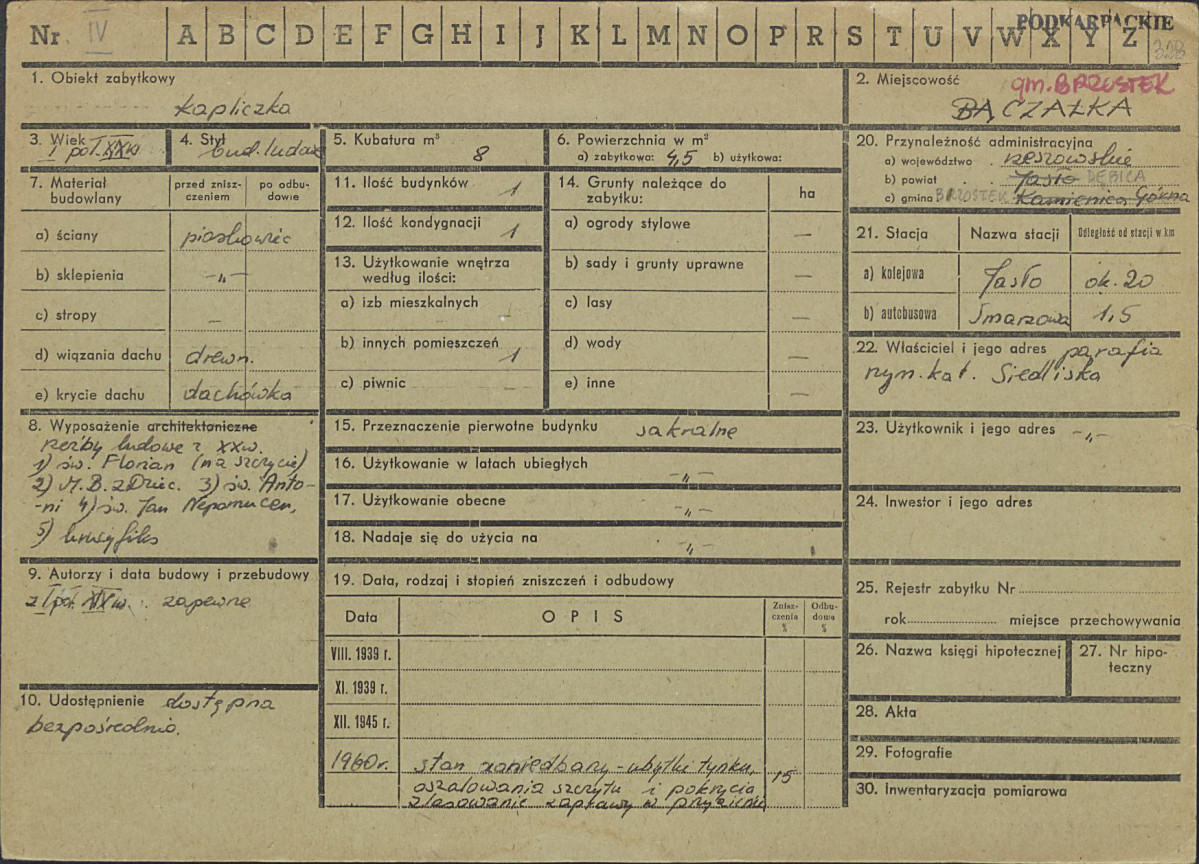 Nr IV A B C D E F G H I J K L M N O P R S T U V W X Y Z
PODKARPACKIE
328
1. Obiekt zabytkowy
kapliczka
2. Miejscowość gm. BRZOSTEK
BĄCZAŁKA
3. Wiek
I poł. XX w
4. Styl
bud. ludow
5. Kubatura m³
8
6. Powierzchnia w m²
a) zabytkowa: 4,5 b) użytkowa:
7. Materiał budowlany
przed znisz-
czeniem
po odbu-
dowie
a) ściany piaskowiec
b) sklepienia -„-
c) stropy —
d) wiązania dachu drewn.
e) krycie dachu dachówka
8. Wyposażenie architektoniczne
rzeźby ludowe z XX w.
1) św. Florian (na szczycie)
2) M.B. z Dziec. 3) św. Anto-
-ni 4) św. Jan Nepomucen,
5) krucyfiks
9. Autorzy i data budowy i przebudowy
z I poł. XX w. zapewne
10. Udostępnienie dostępna
bezpośrednio.
11. Ilość budynków 1
12. Ilość kondygnacji 1
13. Użytkowanie wnętrza
według ilości:
a) izb mieszkalnych —
b) innych pomieszczeń 1
c) piwnic —
14. Grunty należące do
zabytku:
ha
a) ogrody stylowe —
b) sady i grunty uprawne —
c) lasy —
d) wody —
e) inne —
15. Przeznaczenie pierwotne budynku sakralne
16. Użytkowanie w latach ubiegłych -„-
17. Użytkowanie obecne -„-
18. Nadaje się do użycia na -„-
19. Data, rodzaj i stopień zniszczeń i odbudowy
Data
OPIS
Znisz-
czenia
%
Odbu-
dowa
%
VIII. 1939 r.
XI. 1939 r.
XII. 1945 r.
1960 r. stan zaniedbany - ubytki tynku,
oszalowania szczytu i pokrycia
zlasowanie zaprawy w przyziemiu
15
20. Przynależność administracyjna
a) województwo rzeszowskie
b) powiat Jasło DĘBICA
c) gmina BRZOSTEK Kamienica Górna
21. Stacja
Nazwa stacji
Odległość od stacji w km
a) kolejowa Jasło ok. 20
b) autobusowa Smarzowa 1,5
22. Właściciel i jego adres parafia
rzym. kat. Siedliska
23. Użytkownik i jego adres -„-
24. Inwestor i jego adres
25. Rejestr zabytku Nr
rok miejsce przechowywania
26. Nazwa księgi hipotecznej
27. Nr hipo-
teczny
28. Akta
29. Fotografie
30. Inwentaryzacja pomiarowa